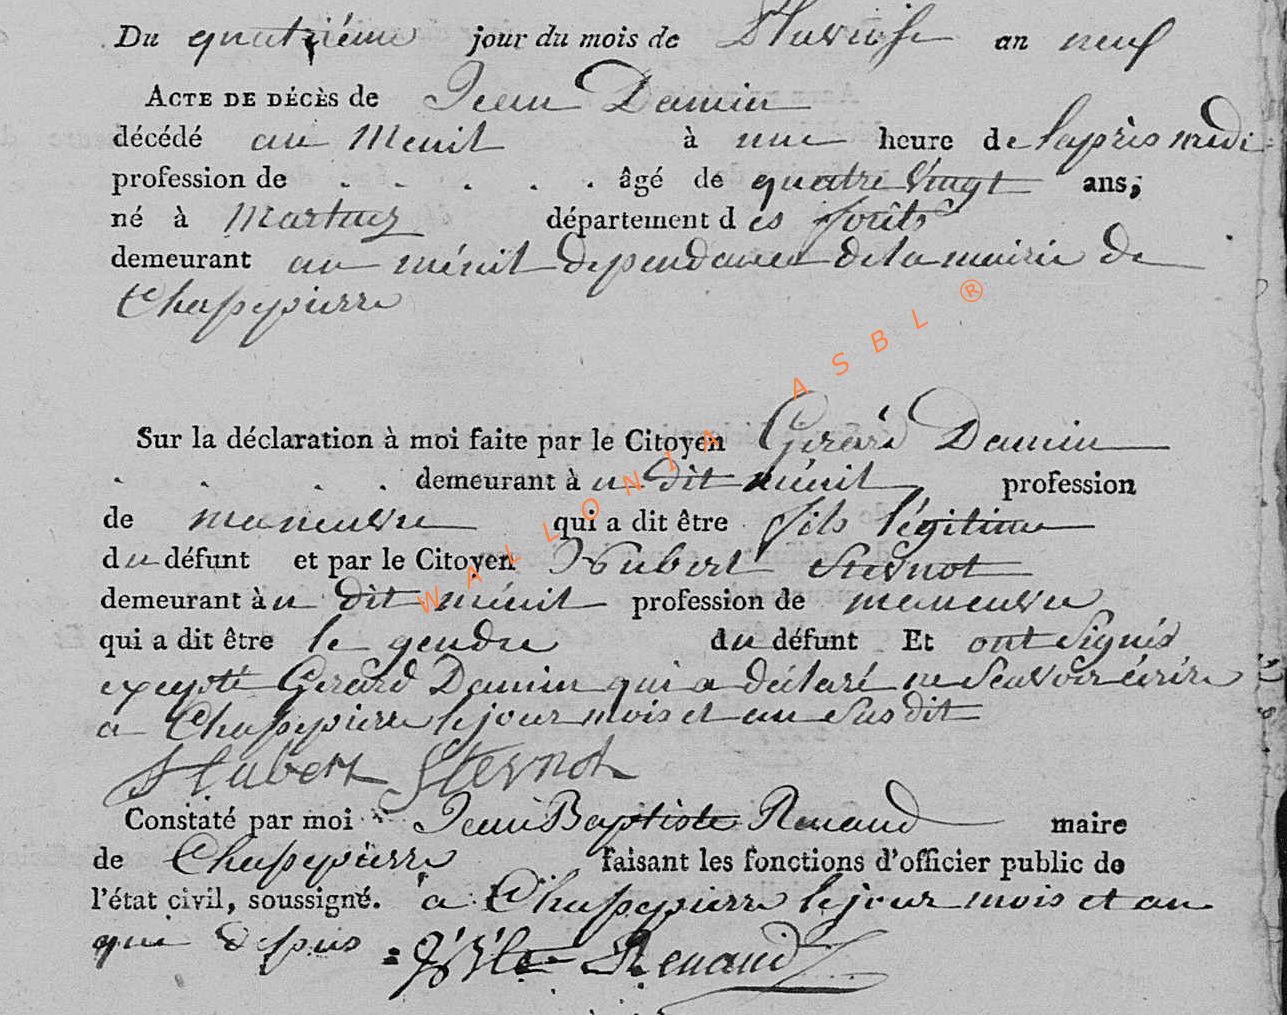 Du quatrième jour du mois de Pluviose an neuf
ACTE DE DÉCÈS de Jean Damin
décédé au Menil à une heure de l'après midi
profession de . . . . . âgé de quatre Vingt ans;
né à département des forêts
demeurant au ménil dependance de la mairie de
Chassepierre
Sur la déclaration à moi faite par le Citoyen Gerard Damin
. . . . demeurant à u dit ménil profession
de maneuvre qui a dit être fils légitime
du défunt et par le Citoyen Hubert Stevnot
demeurant à u dit ménil profession de maneuvre
qui a dit être le gendre du défunt Et ont signés
excepté Gerard Damin qui a déclaré ne Scavoir écrire
a Chassepierre le jour mois et an Susdit
Hubert Stevnot
Constaté par moi Jean Baptiste Renaud maire
de Chassepierre faisant les fonctions d'officier public de
l'état civil, soussigné. a Chassepierre le jour mois et an
que dessus = Renaud
WALLONIA ASBL ®